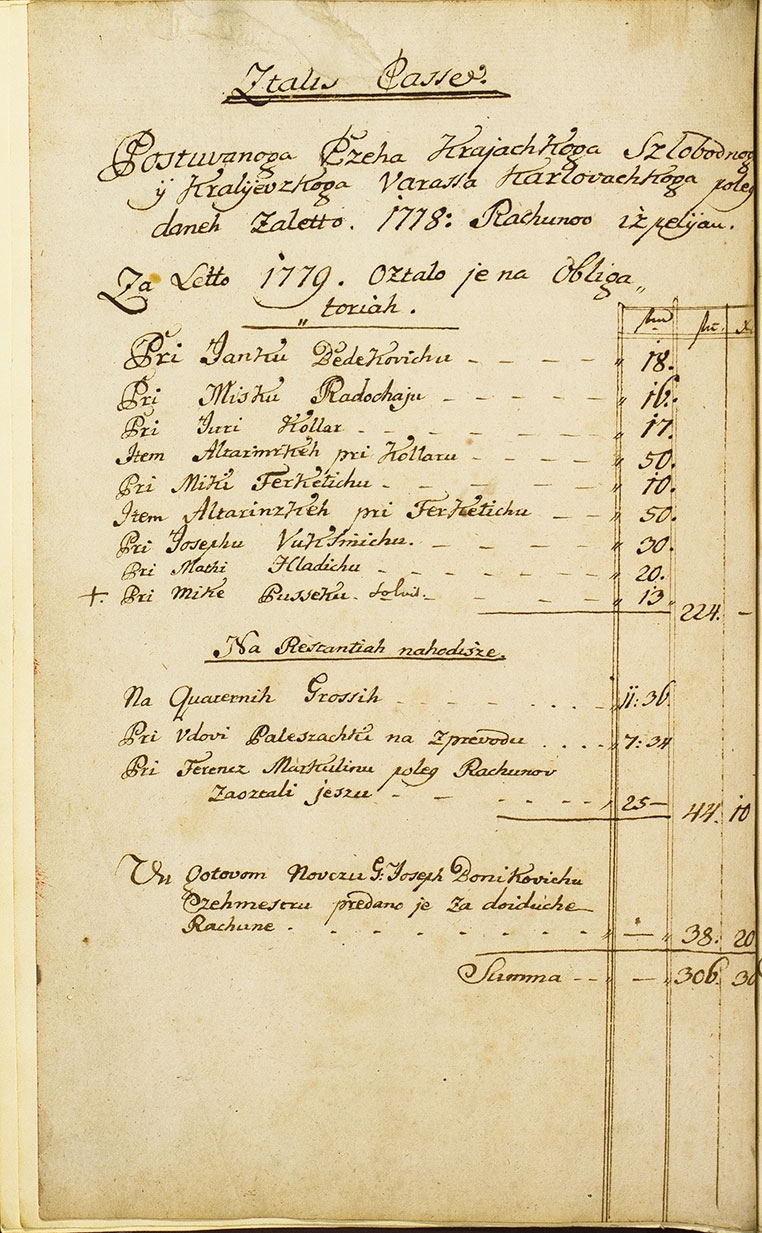 Ztalis Cassej.
Postuvanoga Czeha Krajachkoga Szlobodnog
ÿ Kralÿevzkoga Varassa Karlovachkoga poleg
daneh Zaletto. 1778: Rachunov izpelÿau.
Za Letto 1779. Oztalo je na Obliga„
„toriah.
Pri Janku Dedekovichu - - - - „ 18.
Pri Misku Radochaju - - - - „ 16.
Pri Juri Kollar - - - - - - „ 17.
Item Altarinzkeh pri Kollaru - - - - „ 50.
Pri Miki Ferketichu - - - - - „ 10.
Item Altarinzkeh pri Ferketichu - - „ 50.
Pri Josephu Vuksinichu. - - - - „ 30.
Pri Mathi Hladichu - - - - - - „ 20.
+. Pri Mike Pusseku. Solvit. - - - - „ 13 „ 224. -
Na Restantiah nahodisze.
Na Quaternih Grossih - - - - . . . . - „ 11: 36
Pri Vdovi Paleszachki na Zprevodu . . . . „ 7: 34
Pri Ferencz Markulinu poleg Rachunov
Zaoztali jeszu - - - - - - - „ 25 - 44. 10
Vu Gotovom Novczu G: Joseph Donikovichu
Czehmestru predano je Za doiduche
Rachune - - - - - - - - „ - „ 38. 20
Summa - - „ - „ 306. 30